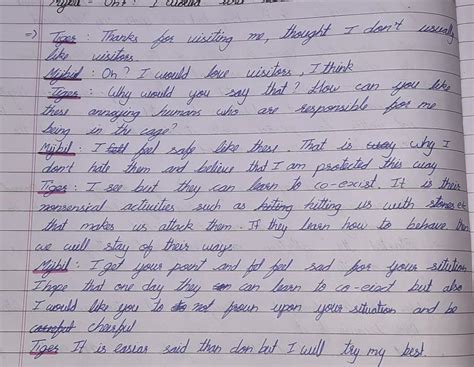 Mijbil - Oh? I would
=> Tiger : Thanks for visiting me, thought I don't usually
like visitors.
Mijbil : Oh? I would love visitors, I think
Tiger : Why would you say that? How can you like
these annoying humans who are responsible for me
being in the cage?
Mijbil : I feel safe like these. That is why I
don't hate them and believe that I am protected this way
Tiger : I see but they can learn to co-exist. It is their
nonsensical activities such as hitting us with stones etc
that makes us attack them. If they learn how to behave then
we will stay of their ways
Mijbil : I get your point and feel sad for your situtian
I hope that one day they can learn to co-exact but also
I would like you to not froun upon your situation and be
cheerful
Tiger It is easiar said than don but I will try my best.